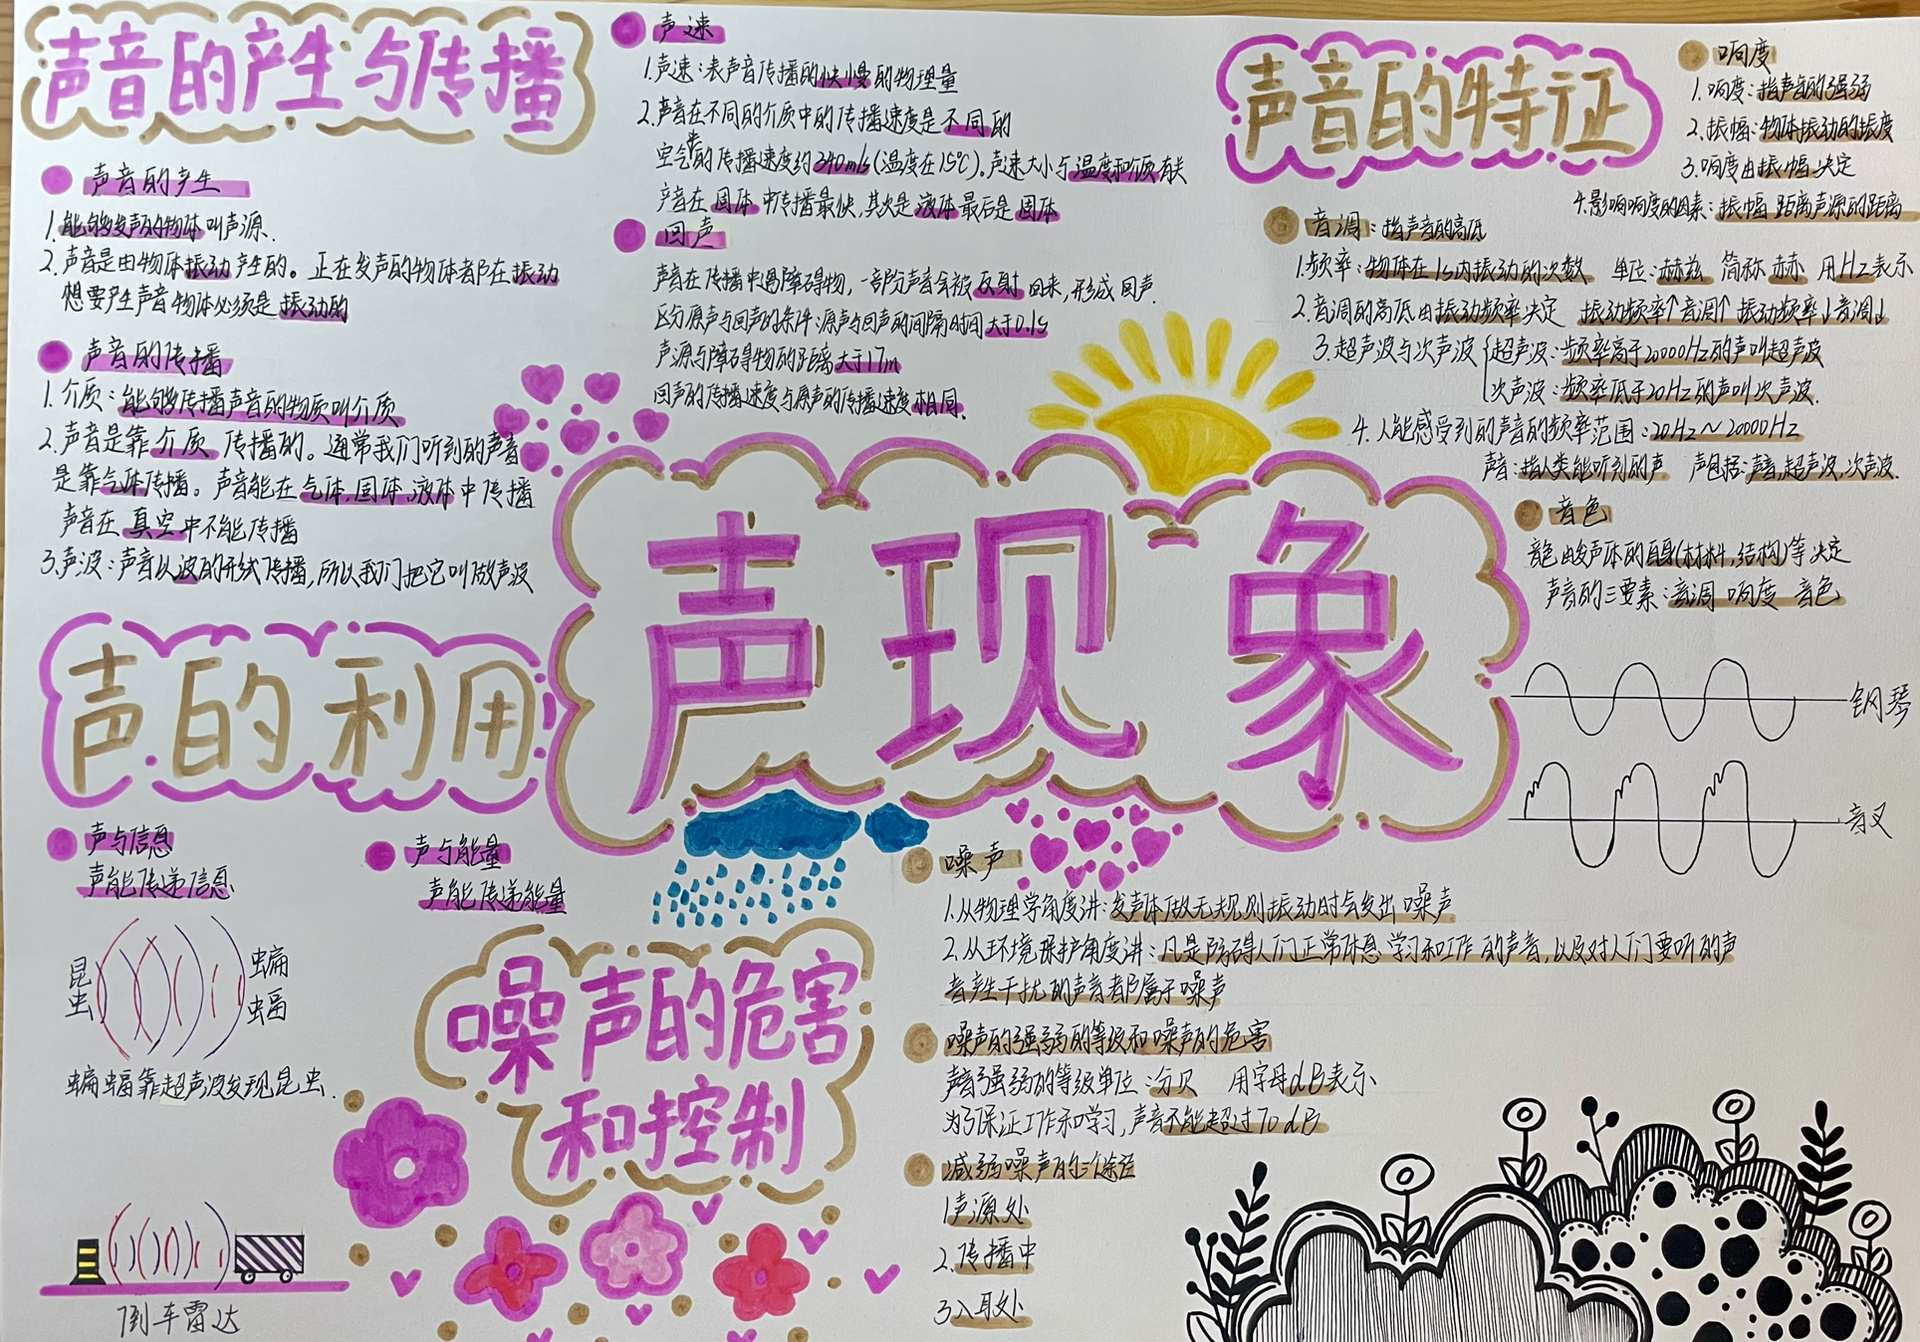 声音的产生与传播
声音的产生
1.能够发声的物体叫声源.
2.声音是由物体振动产生的。正在发声的物体都在振动
想要产生声音物体必须是振动的
声音的传播
1.介质：能够传播声音的物质叫介质
2.声音是靠介质传播的。通常我们听到的声音
是靠气体传播。声音能在气体.固体.液体中传播
声音在真空中不能传播
3.声波：声音以波的形式传播,所以我们把它叫做声波
声速
1.声速：表声音传播的快慢的物理量
2.声音在不同的介质中的传播速度是不同的
空气的传播速度约340m/s(温度在15℃).声速大小与温度和介质有关
声音在固体中传播最快,其次是液体最后是固体
回声
声音在传播中遇障碍物，一部分声音会被反射回来,形成回声.
区分原声与回声的条件：原声与回声的间隔时间大于0.1s
声源与障碍物的距离大于17m
回声的传播速度与原声的传播速度相同.
声音的特征
响度
1.响度：指声音的强弱
2.振幅：物体振动的振度
3.响度由振幅决定
4.影响响度的因素：振幅 距离声源的距离
音调：指声音的高低
1.频率：物体在1s内振动的次数 单位：赫兹 简称赫 用Hz表示
2.音调的高低由振动频率决定 振动频率↑音调↑ 振动频率↓音调↓
3.超声波与次声波{超声波：频率高于20000Hz的声叫超声波
次声波：频率低于20Hz的声叫次声波.
4.人能感受到的声音的频率范围：20Hz~20000Hz
声音：指人类能听到的声 声包括：声音,超声波,次声波.
音色
音色由发声体的自身(材料,结构)等决定
声音的三要素：音调 响度 音色
钢琴
音叉
声现象
声的利用
声与信息
声能传递信息
声与能量
声能传递能量
昆虫
蝙蝠
蝙蝠靠超声波发现昆虫.
倒车雷达
噪声的危害
和控制
噪声
1.从物理学角度讲：发声体做无规则振动时会发出噪声
2.从环境保护角度讲：凡是防碍人们正常休息 学习和工作的声音,以及对人们要听的声
音产生干扰的声音都属于噪声
噪声的强弱的等级和噪声的危害
声音强弱的等级单位：分贝 用字母dB表示
为了保证工作和学习,声音不能超过70dB
减弱噪声的三个途径
1声源处
2.传播中
3入耳处